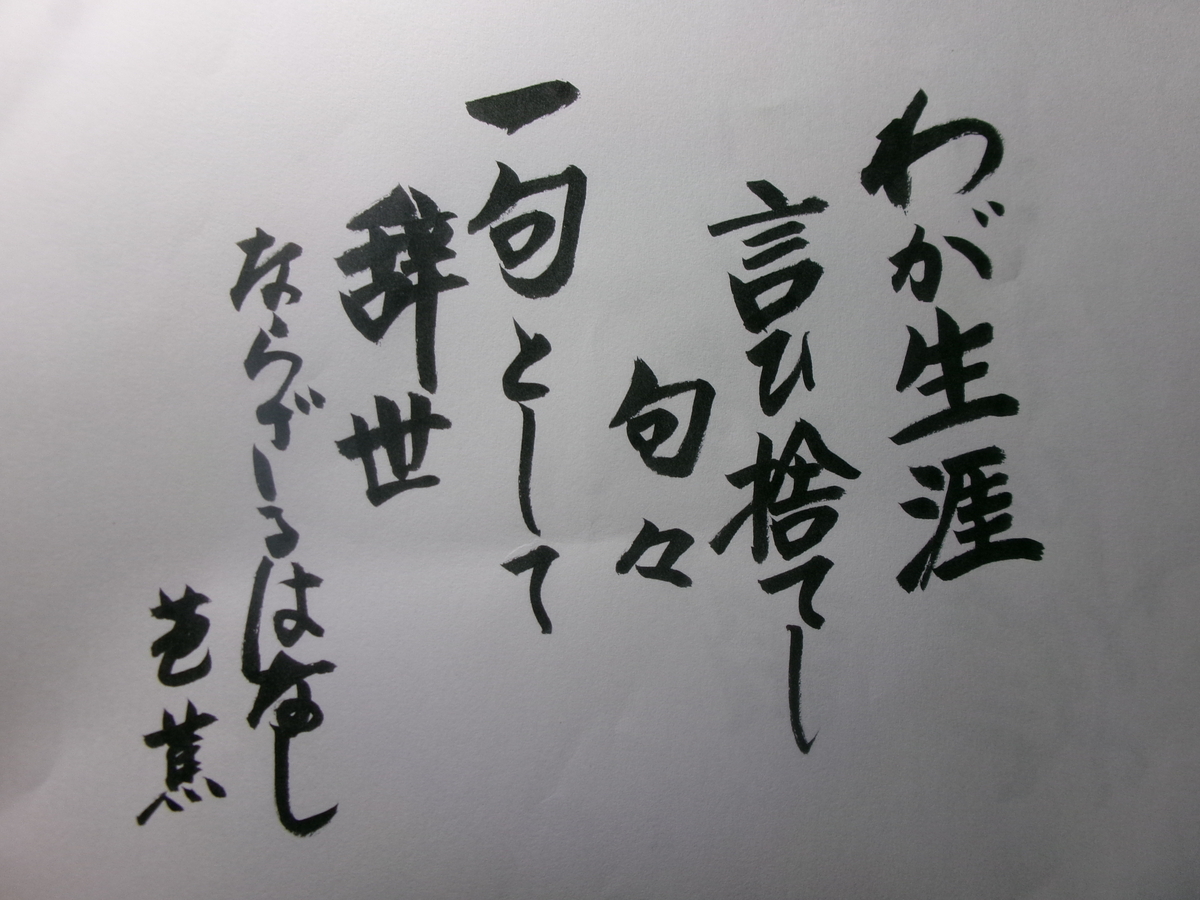 わが生涯
言ひ捨てし
句々
一句として
辞世
ならざるはなし
芭蕉